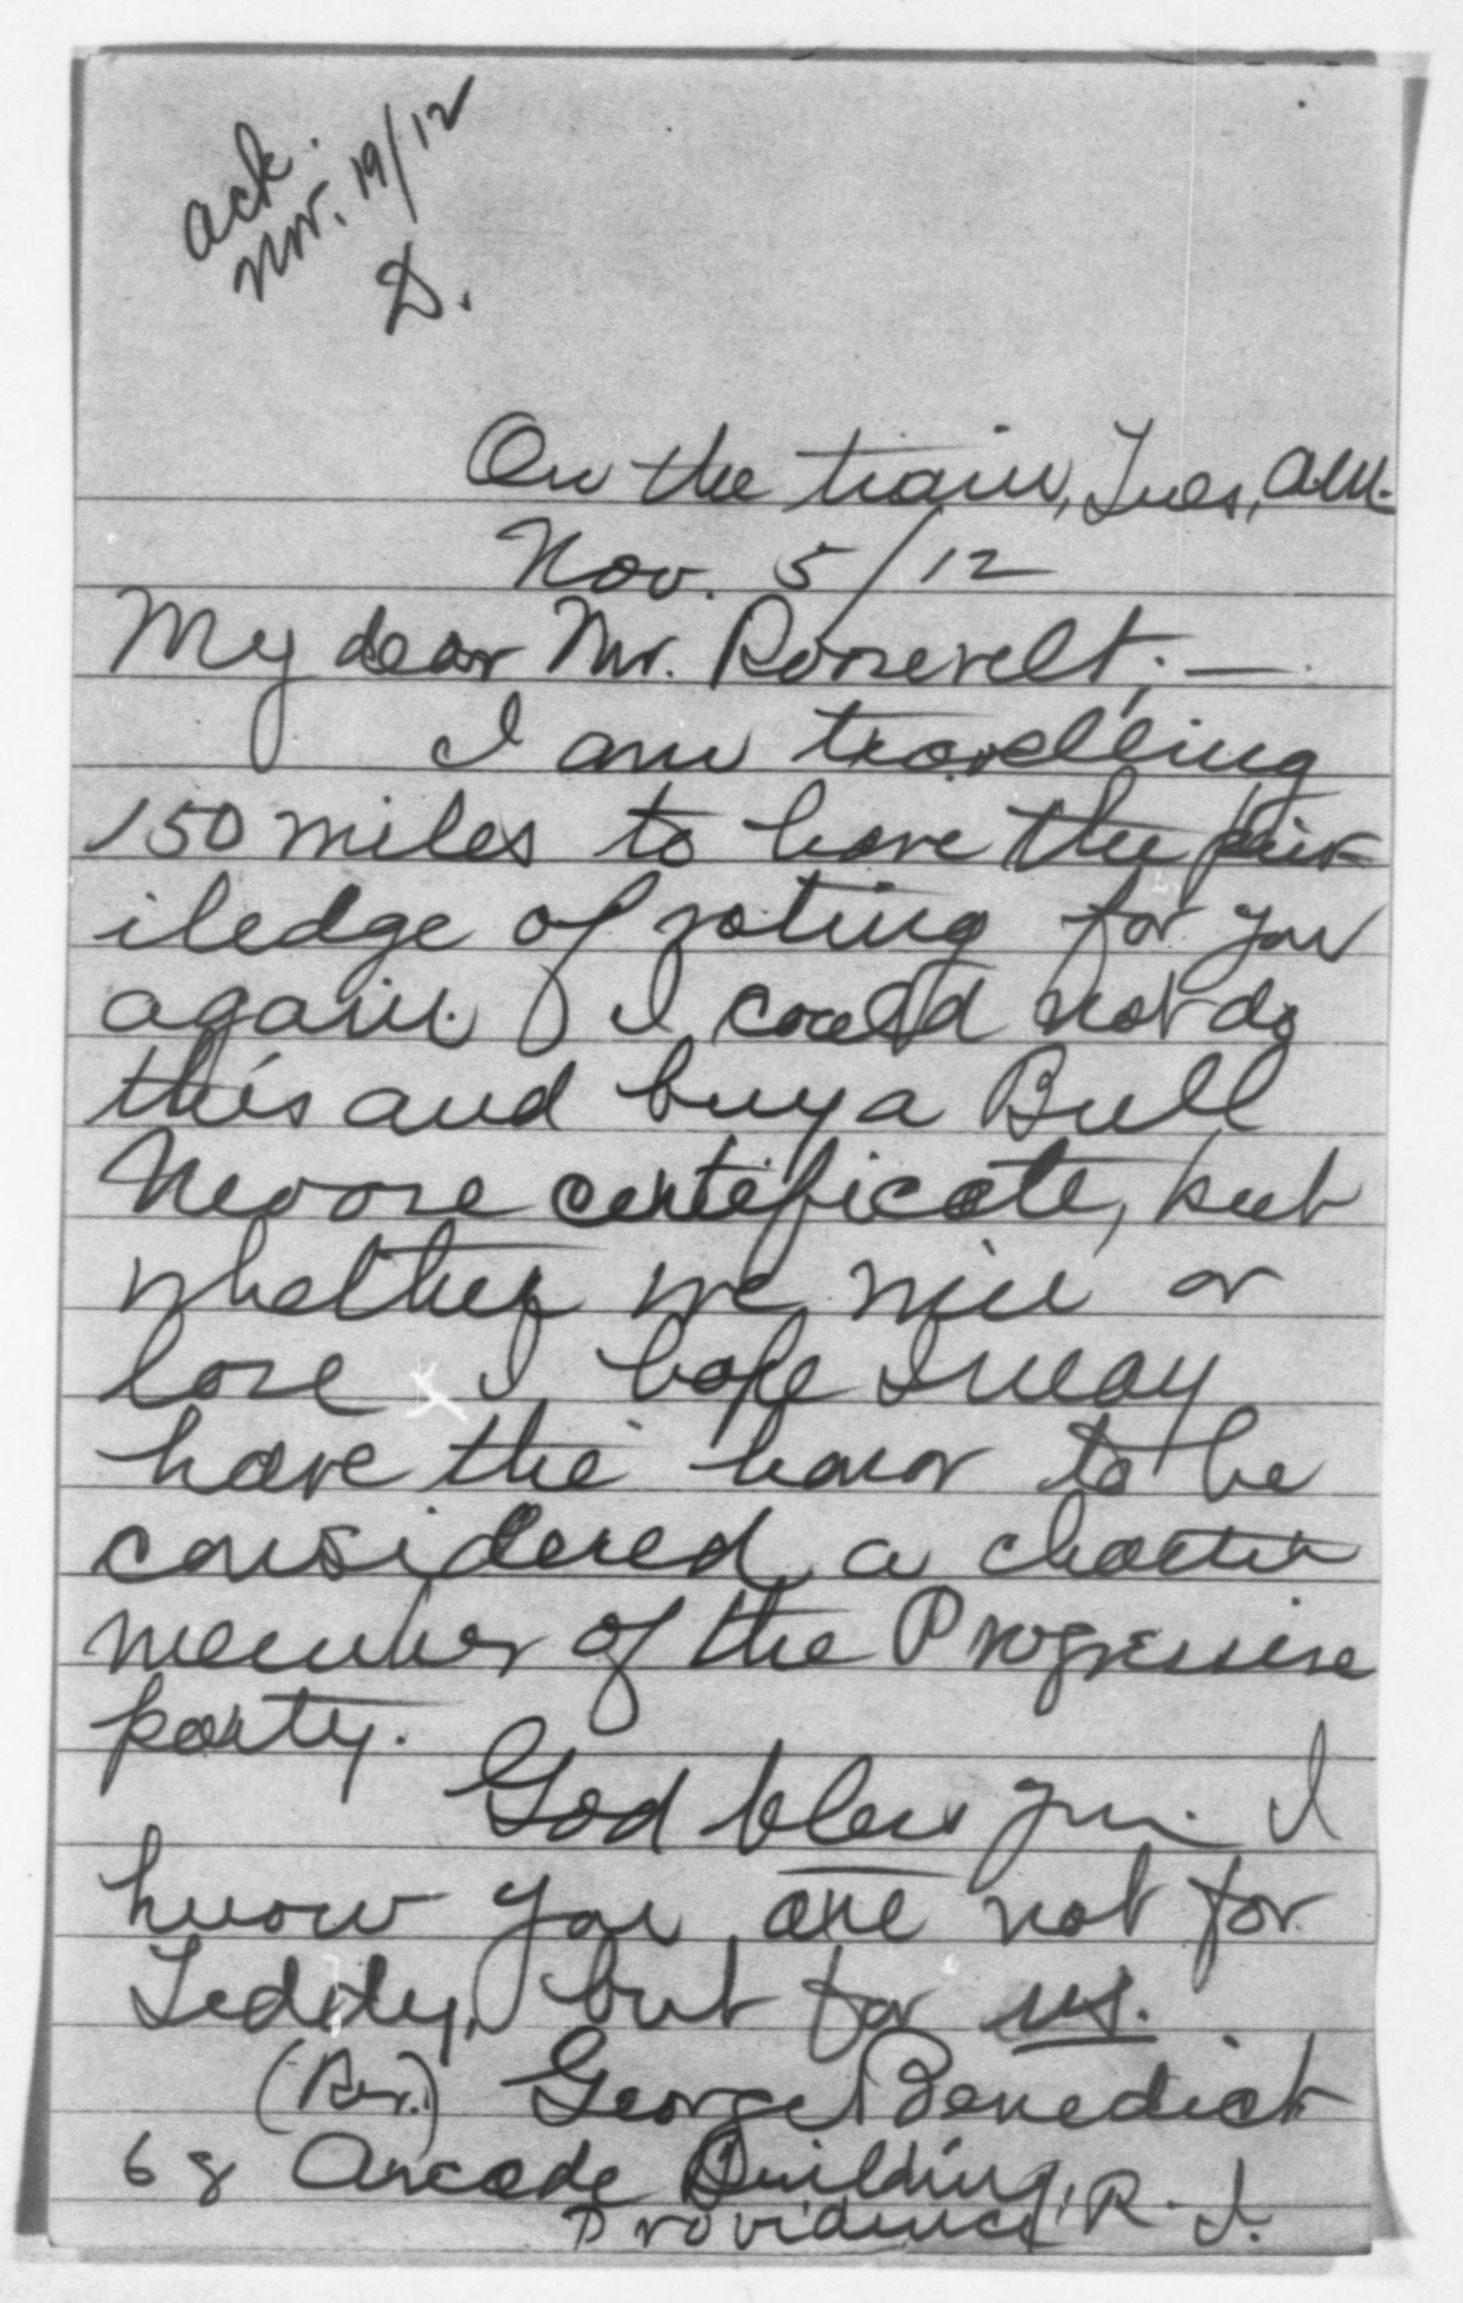 ack.
Nov. 19/12
D.
On the train, Tues, A.M.
Nov. 5/12
My dear Mr. Roosevelt; —
I am travelling
150 miles to have the priv-
iledge of voting for you
again. I could not do
this and buy a Bull
Moose certificate, but
whether we win or
lose I hope I may
have the honor to be
considered a charter
member of the Progressive
party.
God bless you. I
know you are not for
Teddy, but for us.
(Rev.) George Benedict
68 Arcade Building,
Providence, R. I.